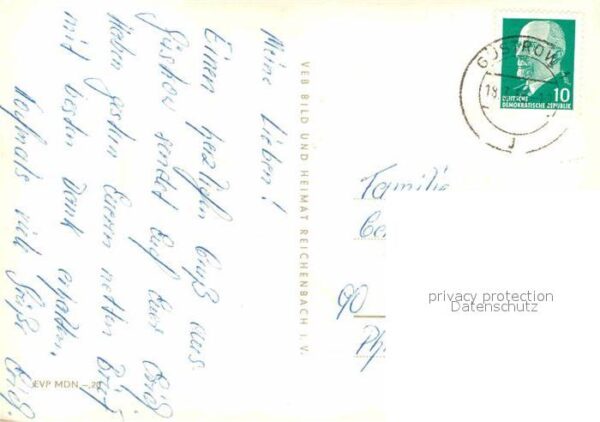 Meine Lieben!
Einen herzlichen Gruß aus
Güstrow sendet Euch Eure
Haben gestern Euren netten Brief
mit bestem Dank erhalten.
Nochmals viele Grüße
VEB BILD UND HEIMAT REICHENBACH i. V.
EVP MDN -,20
GÜSTROW
18.
DEUTSCHE
DEMOKRATISCHE REPUBLIK
10
Familie
90
privacy protection
Datenschutz